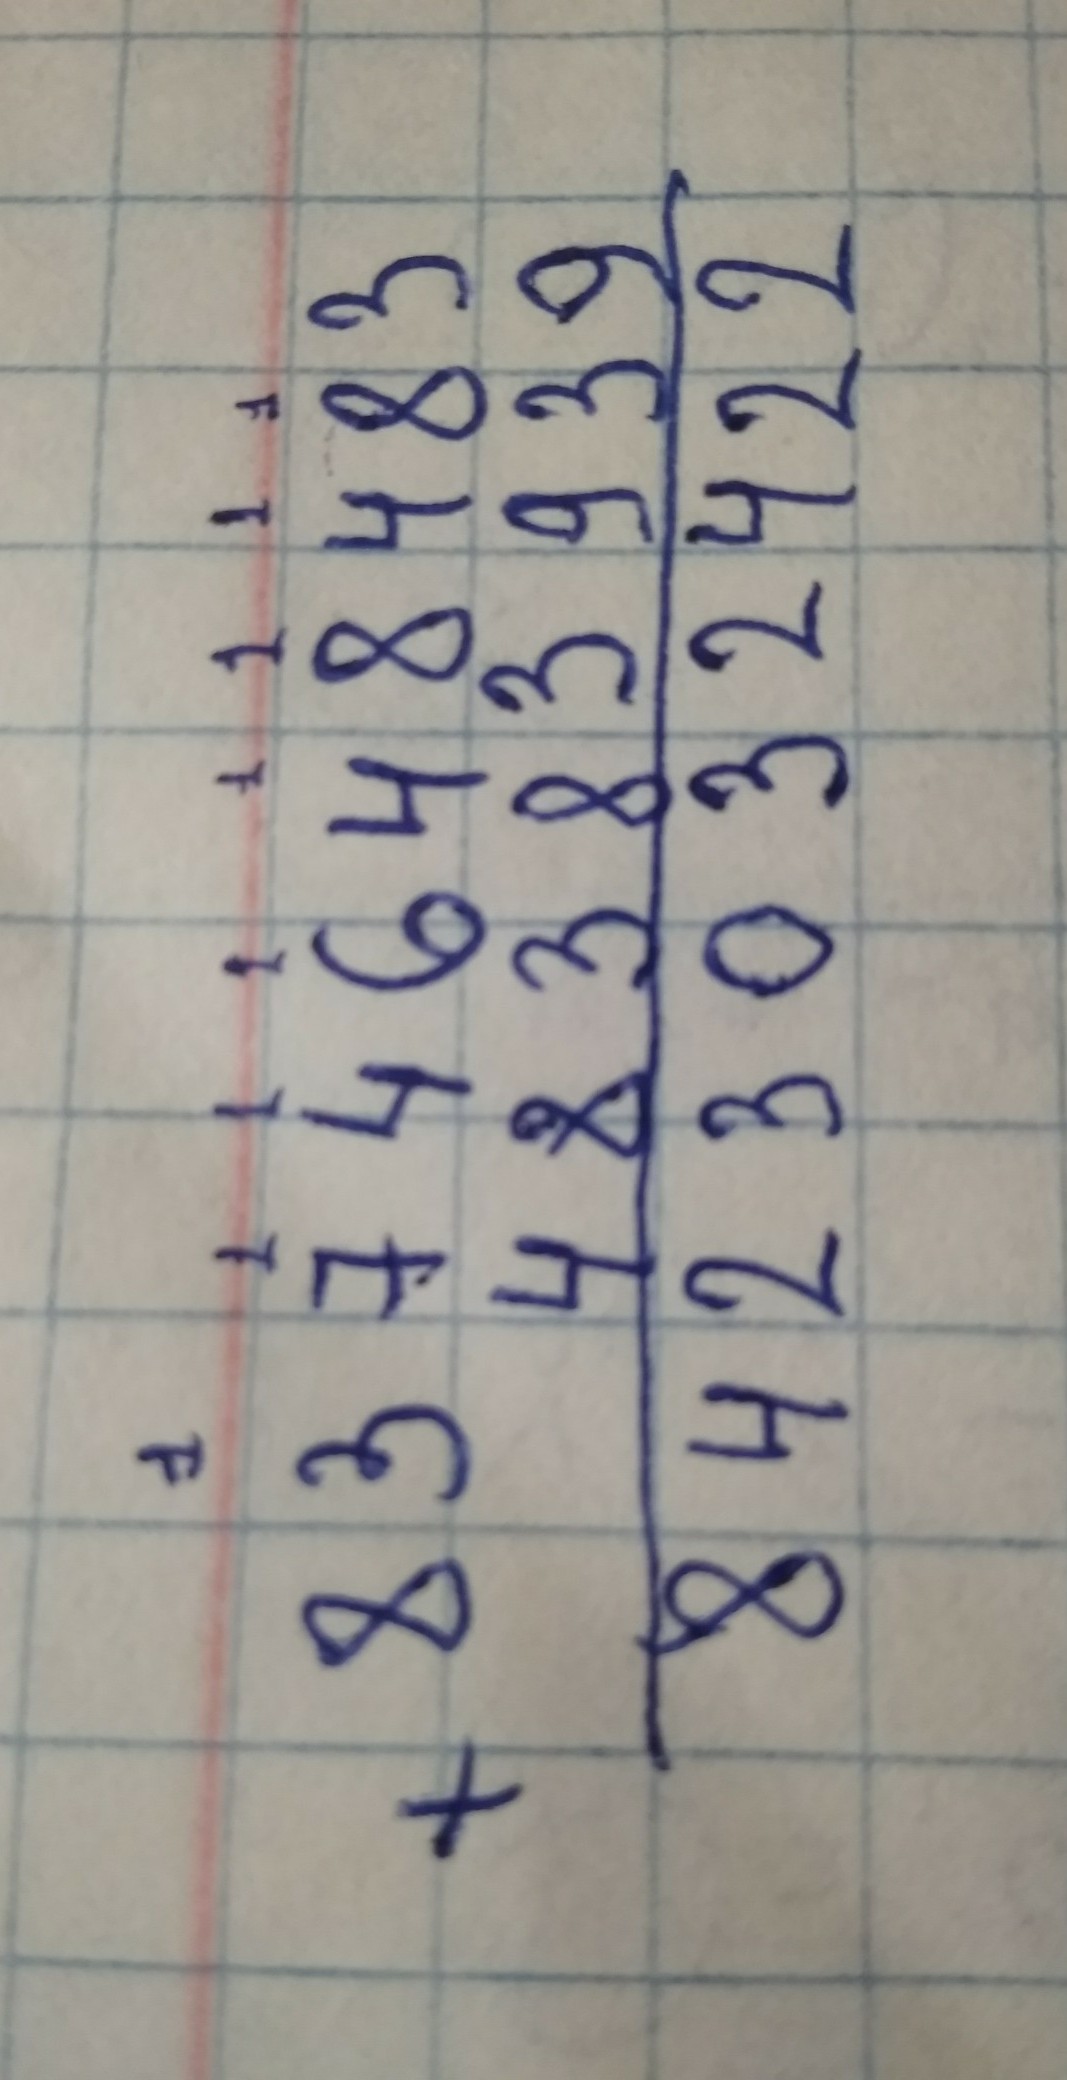 1 1 1 1 1 1 1 1
8374648483
+
48383939
8423032422